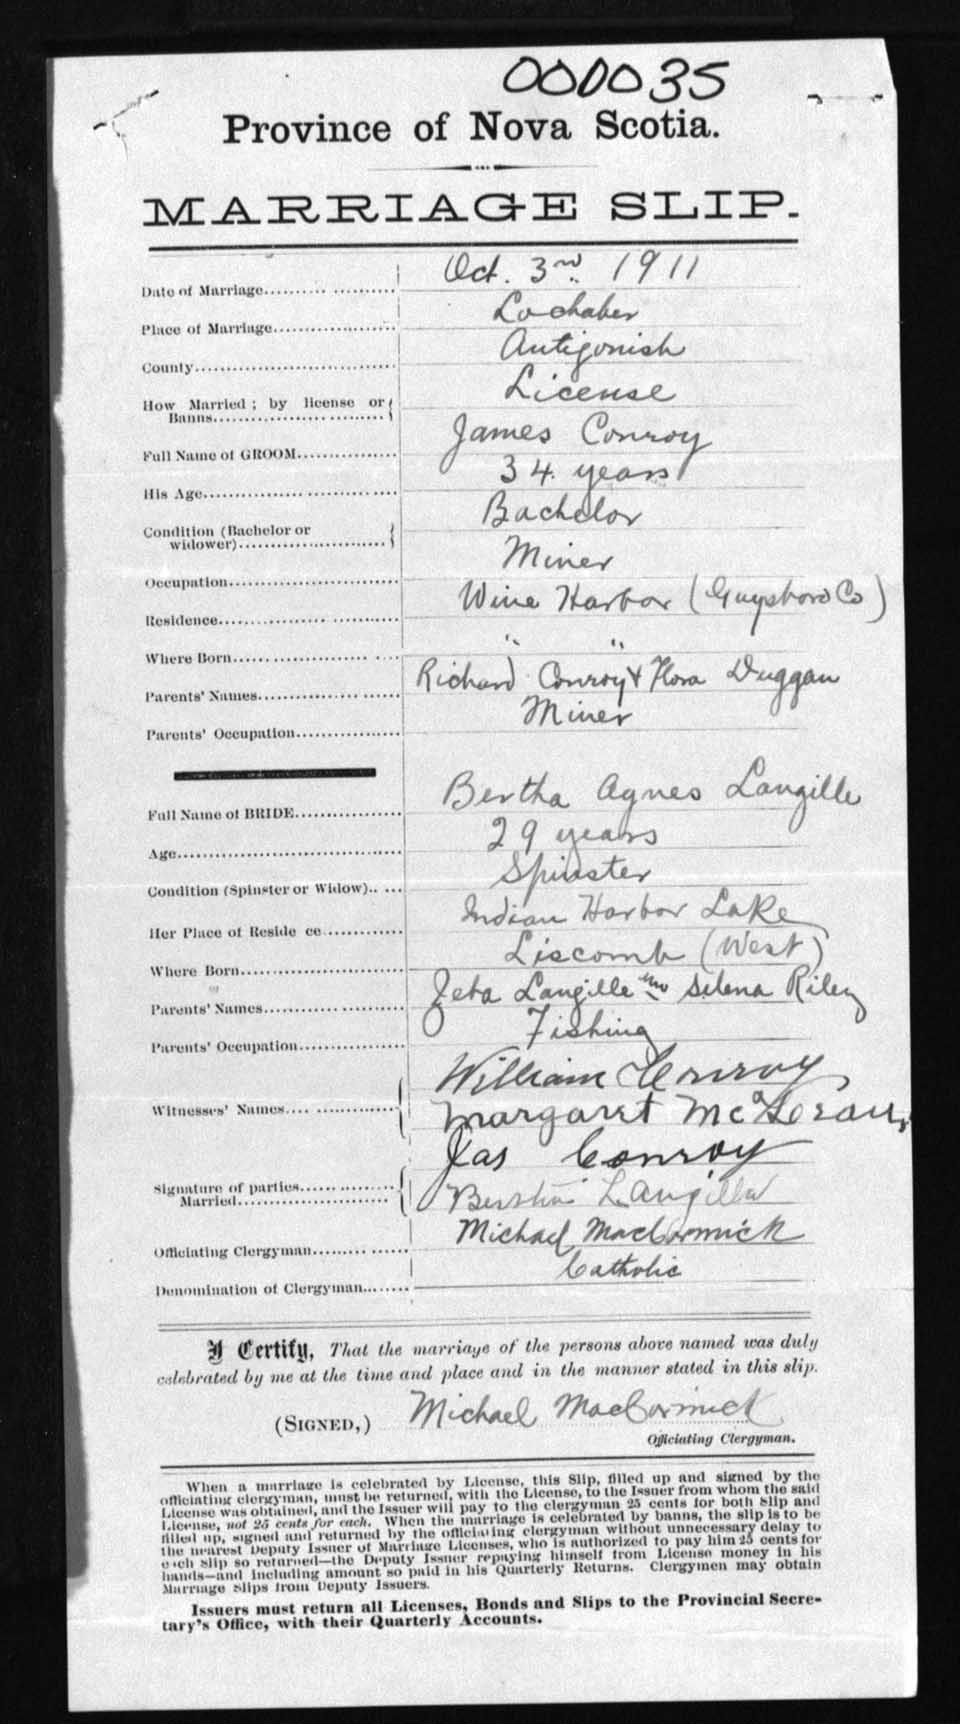 000035
Province of Nova Scotia.
MARRIAGE SLIP.
Date of Marriage Oct. 3rd 1911
Place of Marriage Lochaber
County Antigonish
How Married; by license or Banns License
Full Name of GROOM James Conroy
His Age 34 years
Condition (Bachelor or widower) Bachelor
Occupation Miner
Residence Wine Harbor (Guysboro Co)
Where Born " "
Parents' Names Richard Conroy & Flora Duggan
Parents' Occupation Miner
Full Name of BRIDE Bertha Agnes Langille
Age 29 years
Condition (Spinster or Widow) Spinster
Her Place of Reside ce Indian Harbor Lake
Where Born Liscomb (West)
Parents' Names Langille Selena Riley
Parents' Occupation Fishing
William Conroy
Witnesses' Names Margaret McLean
Jas Conroy
Signature of parties Married Bertha Langille
Officiating Clergyman Michael MacCormick
Denomination of Clergyman Catholic
I Certify, That the marriage of the persons above named was duly
celebrated by me at the time and place and in the manner stated in this slip.
(SIGNED,) Michael MacCormick
Officiating Clergyman.
When a marriage is celebrated by License, this Slip, filled up and signed by the
officiating clergyman, must be returned, with the License, to the Issuer from whom the said
License was obtained, and the Issuer will pay to the clergyman 25 cents for both Slip and
License, not 25 cents for each. When the marriage is celebrated by banns, the slip is to be
filled up, signed and returned by the officiating clergyman without unnecessary delay to
the nearest Deputy Issuer of Marriage Licenses, who is authorized to pay him 25 cents for
each Slip so returned—the Deputy Issuer repaying himself from License money in his
hands—and including amount so paid in his Quarterly Returns. Clergymen may obtain
Marriage Slips from Deputy Issuers.
Issuers must return all Licenses, Bonds and Slips to the Provincial Secre-
tary's Office, with their Quarterly Accounts.